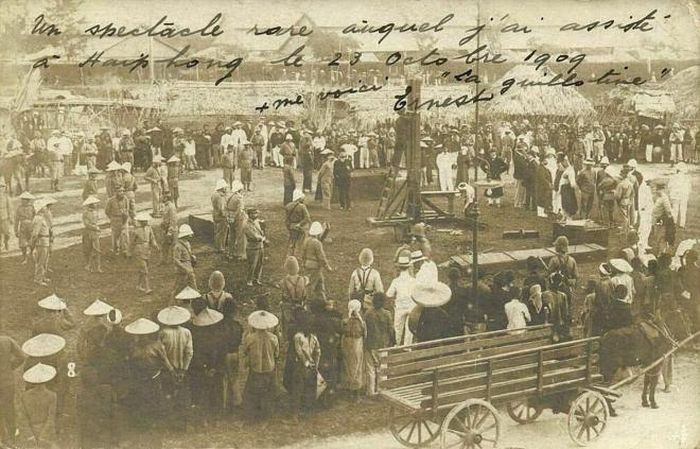 Un spectacle rare auquel j'ai assisté
à Haïphong le 23 Octobre 1909
"La guillotine"
+ me voici Ernest
8